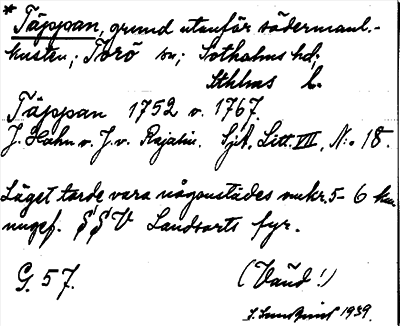 * Täppan, grund utanför södermanl.-
kusten; Torö sn; Sotholms hd;
Sthlms l.
Täppan 1752 o. 1767.
J. Hahn o. J. v. Rajalin. SjA, Litt. VII, N:o 18.
Läget torde vara någonstädes omkr. 5-6 km
ungef. S S V Landsorts fyr.
G. 57.
(Vänd!)
1939.